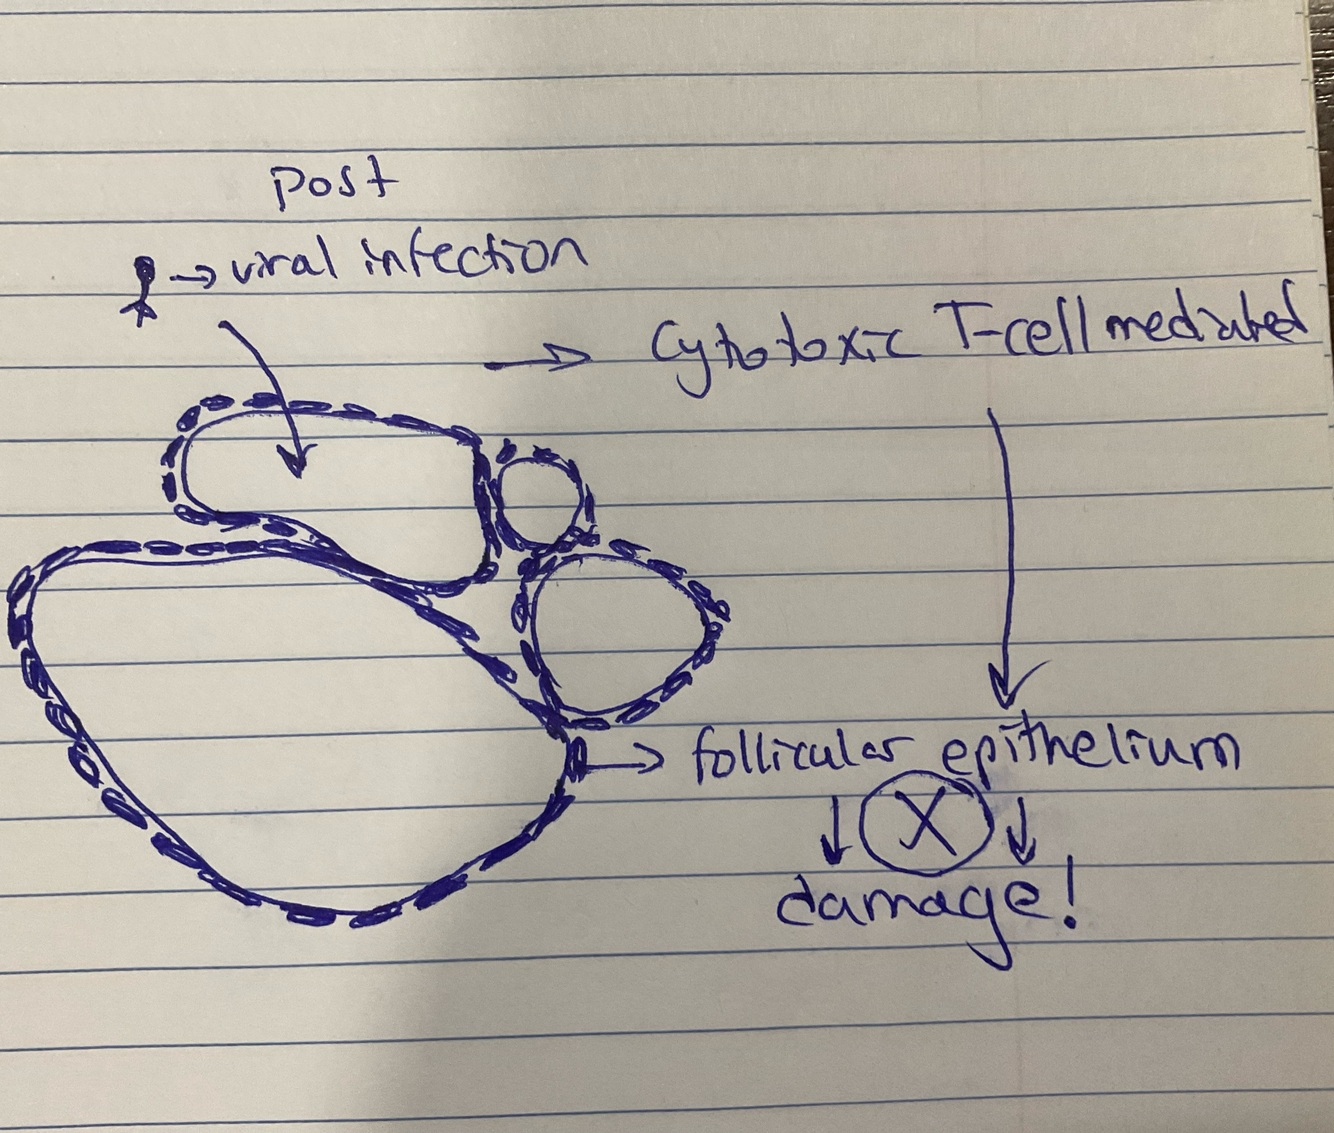 post
→ viral infection
→ Cytotoxic T-cell mediated
→ follicular epithelium
↓ X ↓
damage!